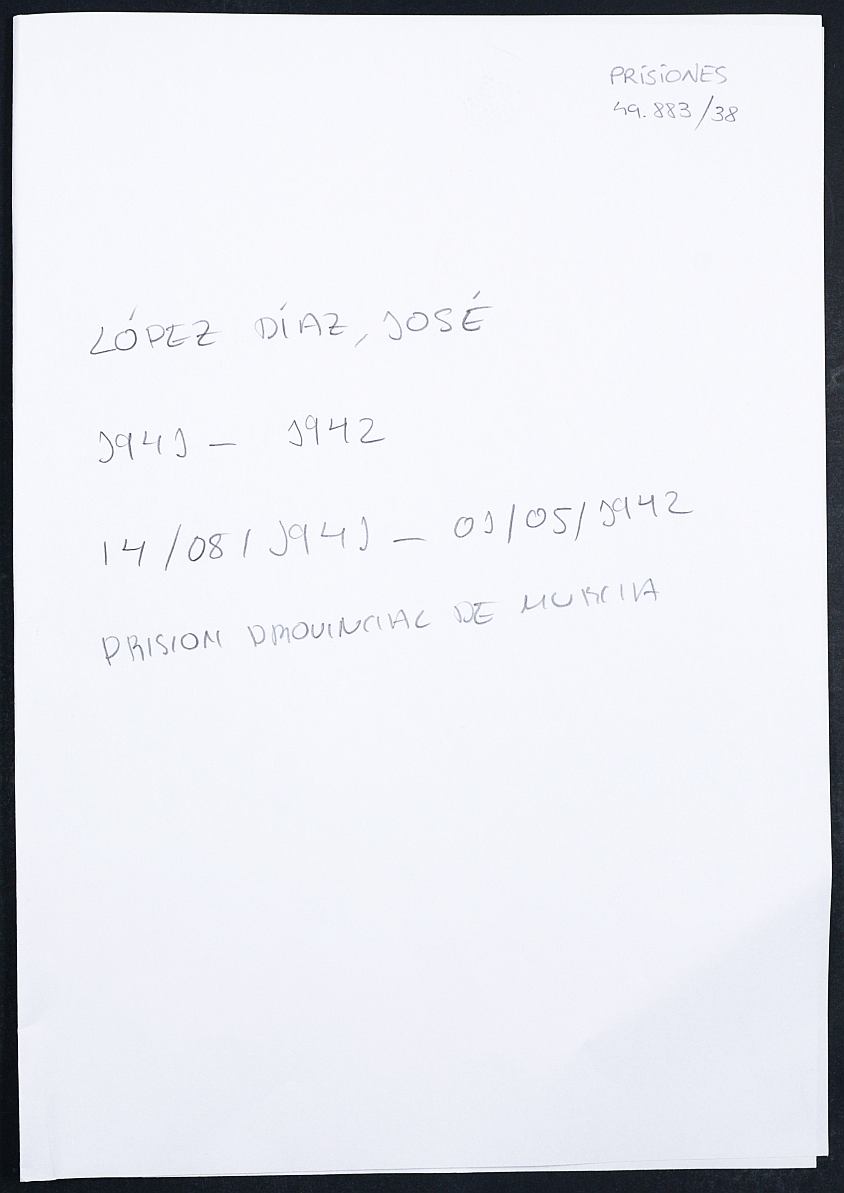 PRISIONES
49.883/38
LÓPEZ DÍAZ, JOSÉ
1941 - 1942
14/08/1941 - 01/05/1942
PRISION PROVINCIAL DE MURCIA